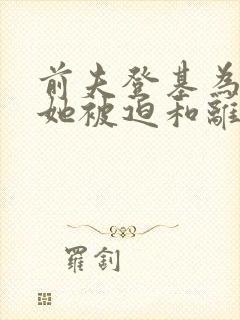 前夫登基為
她被迫和離
羅劊